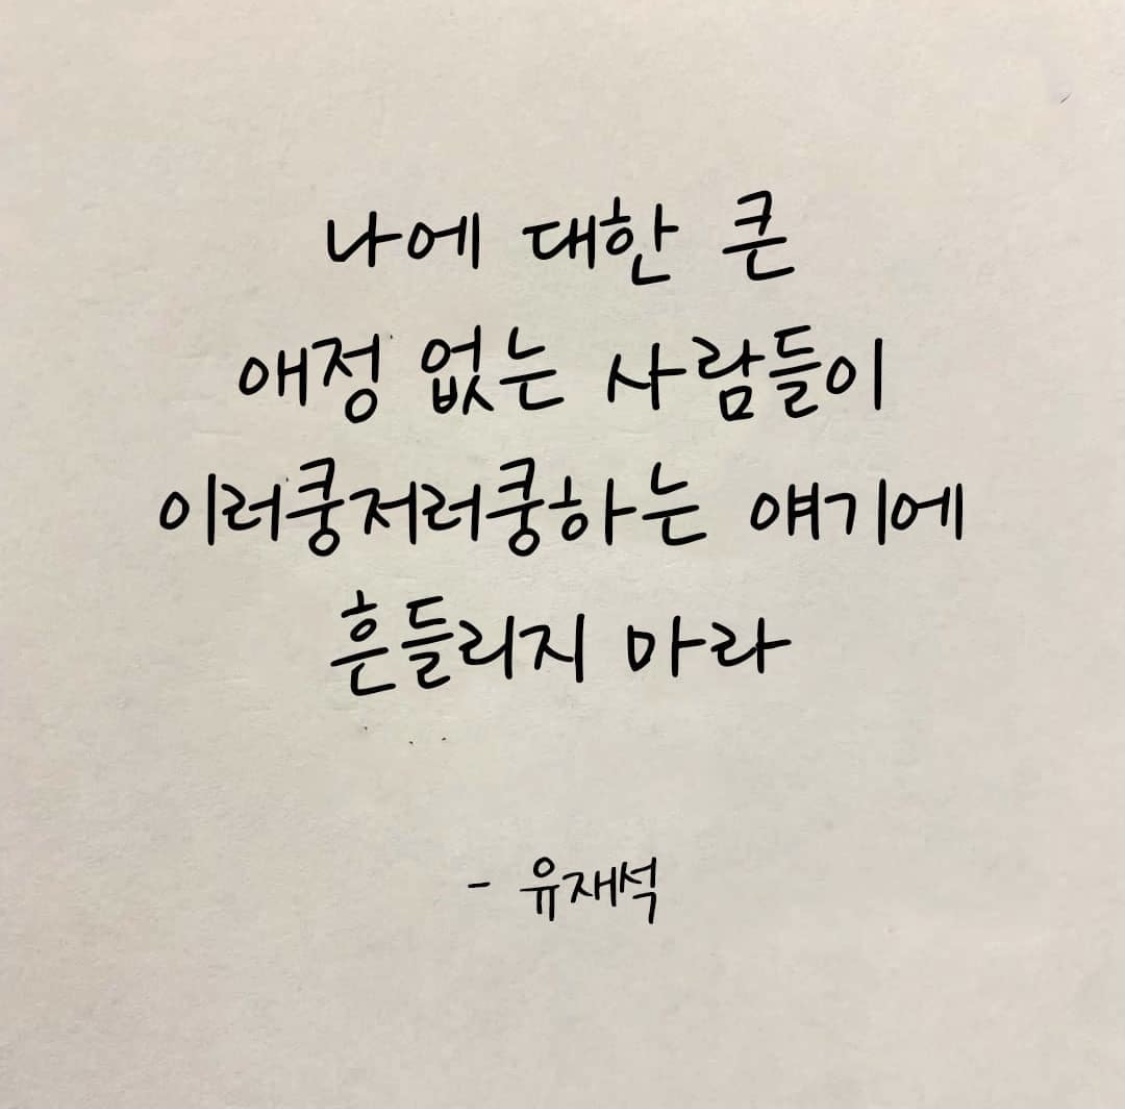 나에 대한 큰
애정 없는 사람들이
이러쿵저러쿵하는 얘기에
흔들리지 마라
- 유재석